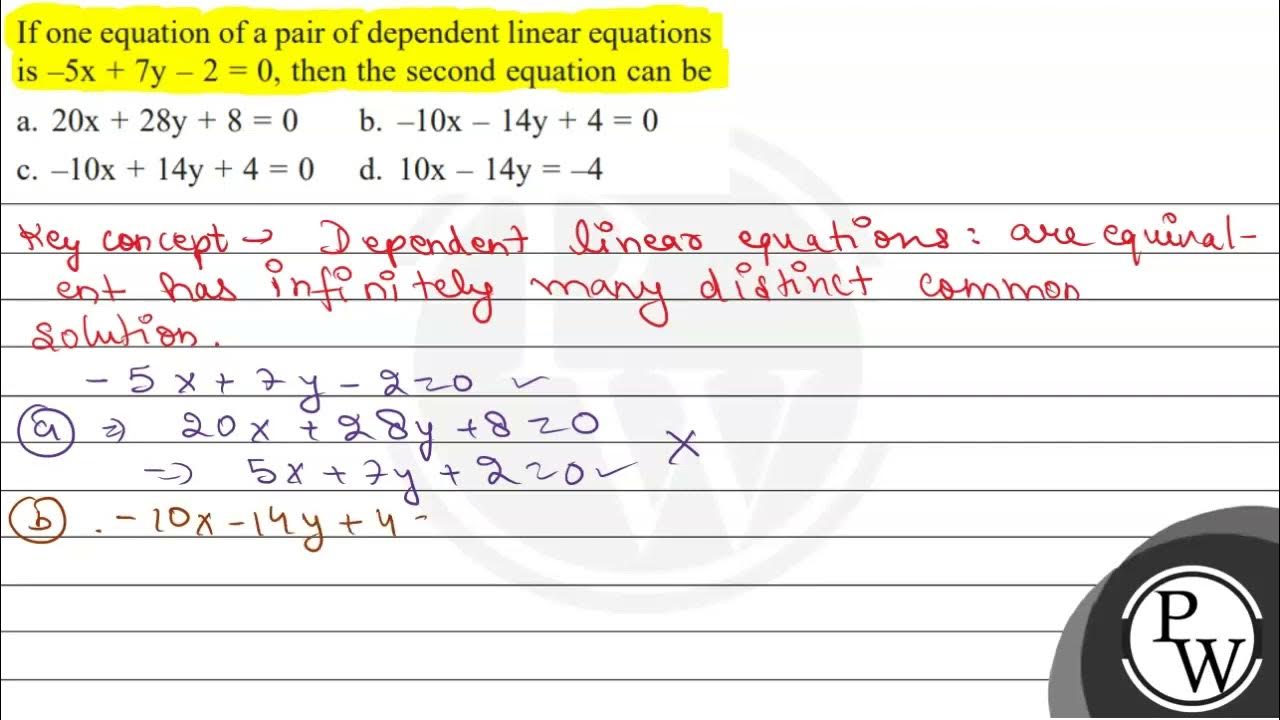 If one equation of a pair of dependent linear equations
is –5x + 7y – 2 = 0, then the second equation can be
a. 20x + 28y + 8 = 0 b. –10x – 14y + 4 = 0
c. –10x + 14y + 4 = 0 d. 10x – 14y = –4
Key concept → Dependent linear equations: are equival-
ent has infinitely many distinct common
solution.
- 5x + 7y - 2 = 0 ✓
(a) ⇒ 20x + 28y + 8 = 0
⇒ 5x + 7y + 2 = 0 ✓ X
(b) . - 10x - 14y + 4 -
PW
PW